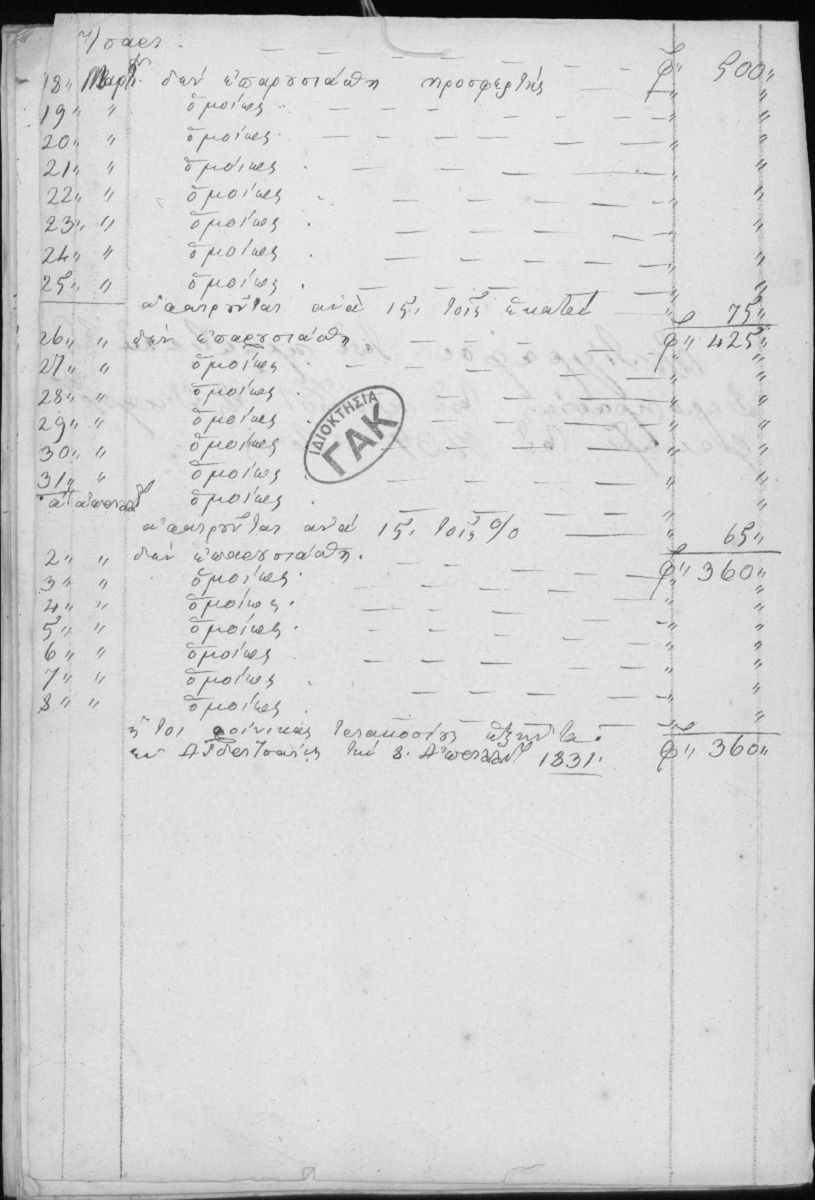 18 " Μαρτ. δὲν ἐπαρουσιάσθη προσφερτής — — φ " 500 "
19 " " ὁμοίως — — — — — " "
20 " " ὁμοίως. — — — — " "
21 " " ὁμοίως — — — — — " "
22 " " ὁμοίως . — — — — " "
23 " " ὁμοίως . — — — — " "
24 " " ὁμοίως — — — — " "
25 " " ὁμοίως . — — — — " "
ἀφαιροῦνται ἀνὰ 15. τοῖς ἑκατὸ — " 75 "
26 " " δὲν ἐπαρουσιάσθη — — — — φ " 425 "
27 " " ὁμοίως — — — — — " "
28 " " ὁμοίως — — — — " "
29 " " ὁμοίως — — — — " "
30 " " ὁμοίως — — — — " "
31 " " ὁμοίως . — — — — " "
ὁμοίως . — — — — " "
ἀφαιροῦνται ἀνὰ 15. τοῖς 0/0 " 65 "
2 " " δὲν ἐπαρουσιάσθη. — — — — φ " 360 "
3 " " ὁμοίως. — — — — " "
4 " " ὁμοίως. — — — — " "
5 " " ὁμοίως. — — — — " "
6 " " ὁμοίως — — — — " "
7 " " ὁμοίως — — — — " "
8 " " ὁμοίως — — — — " "
ἤτοι φοίνικας τριακοσίους ἑξῆντα.
ἐν τὴν 8. Ἀπριλλίου 1831. φ " 360 "
ΙΔΙΟΚΤΗΣΙΑ
ΓΑΚ